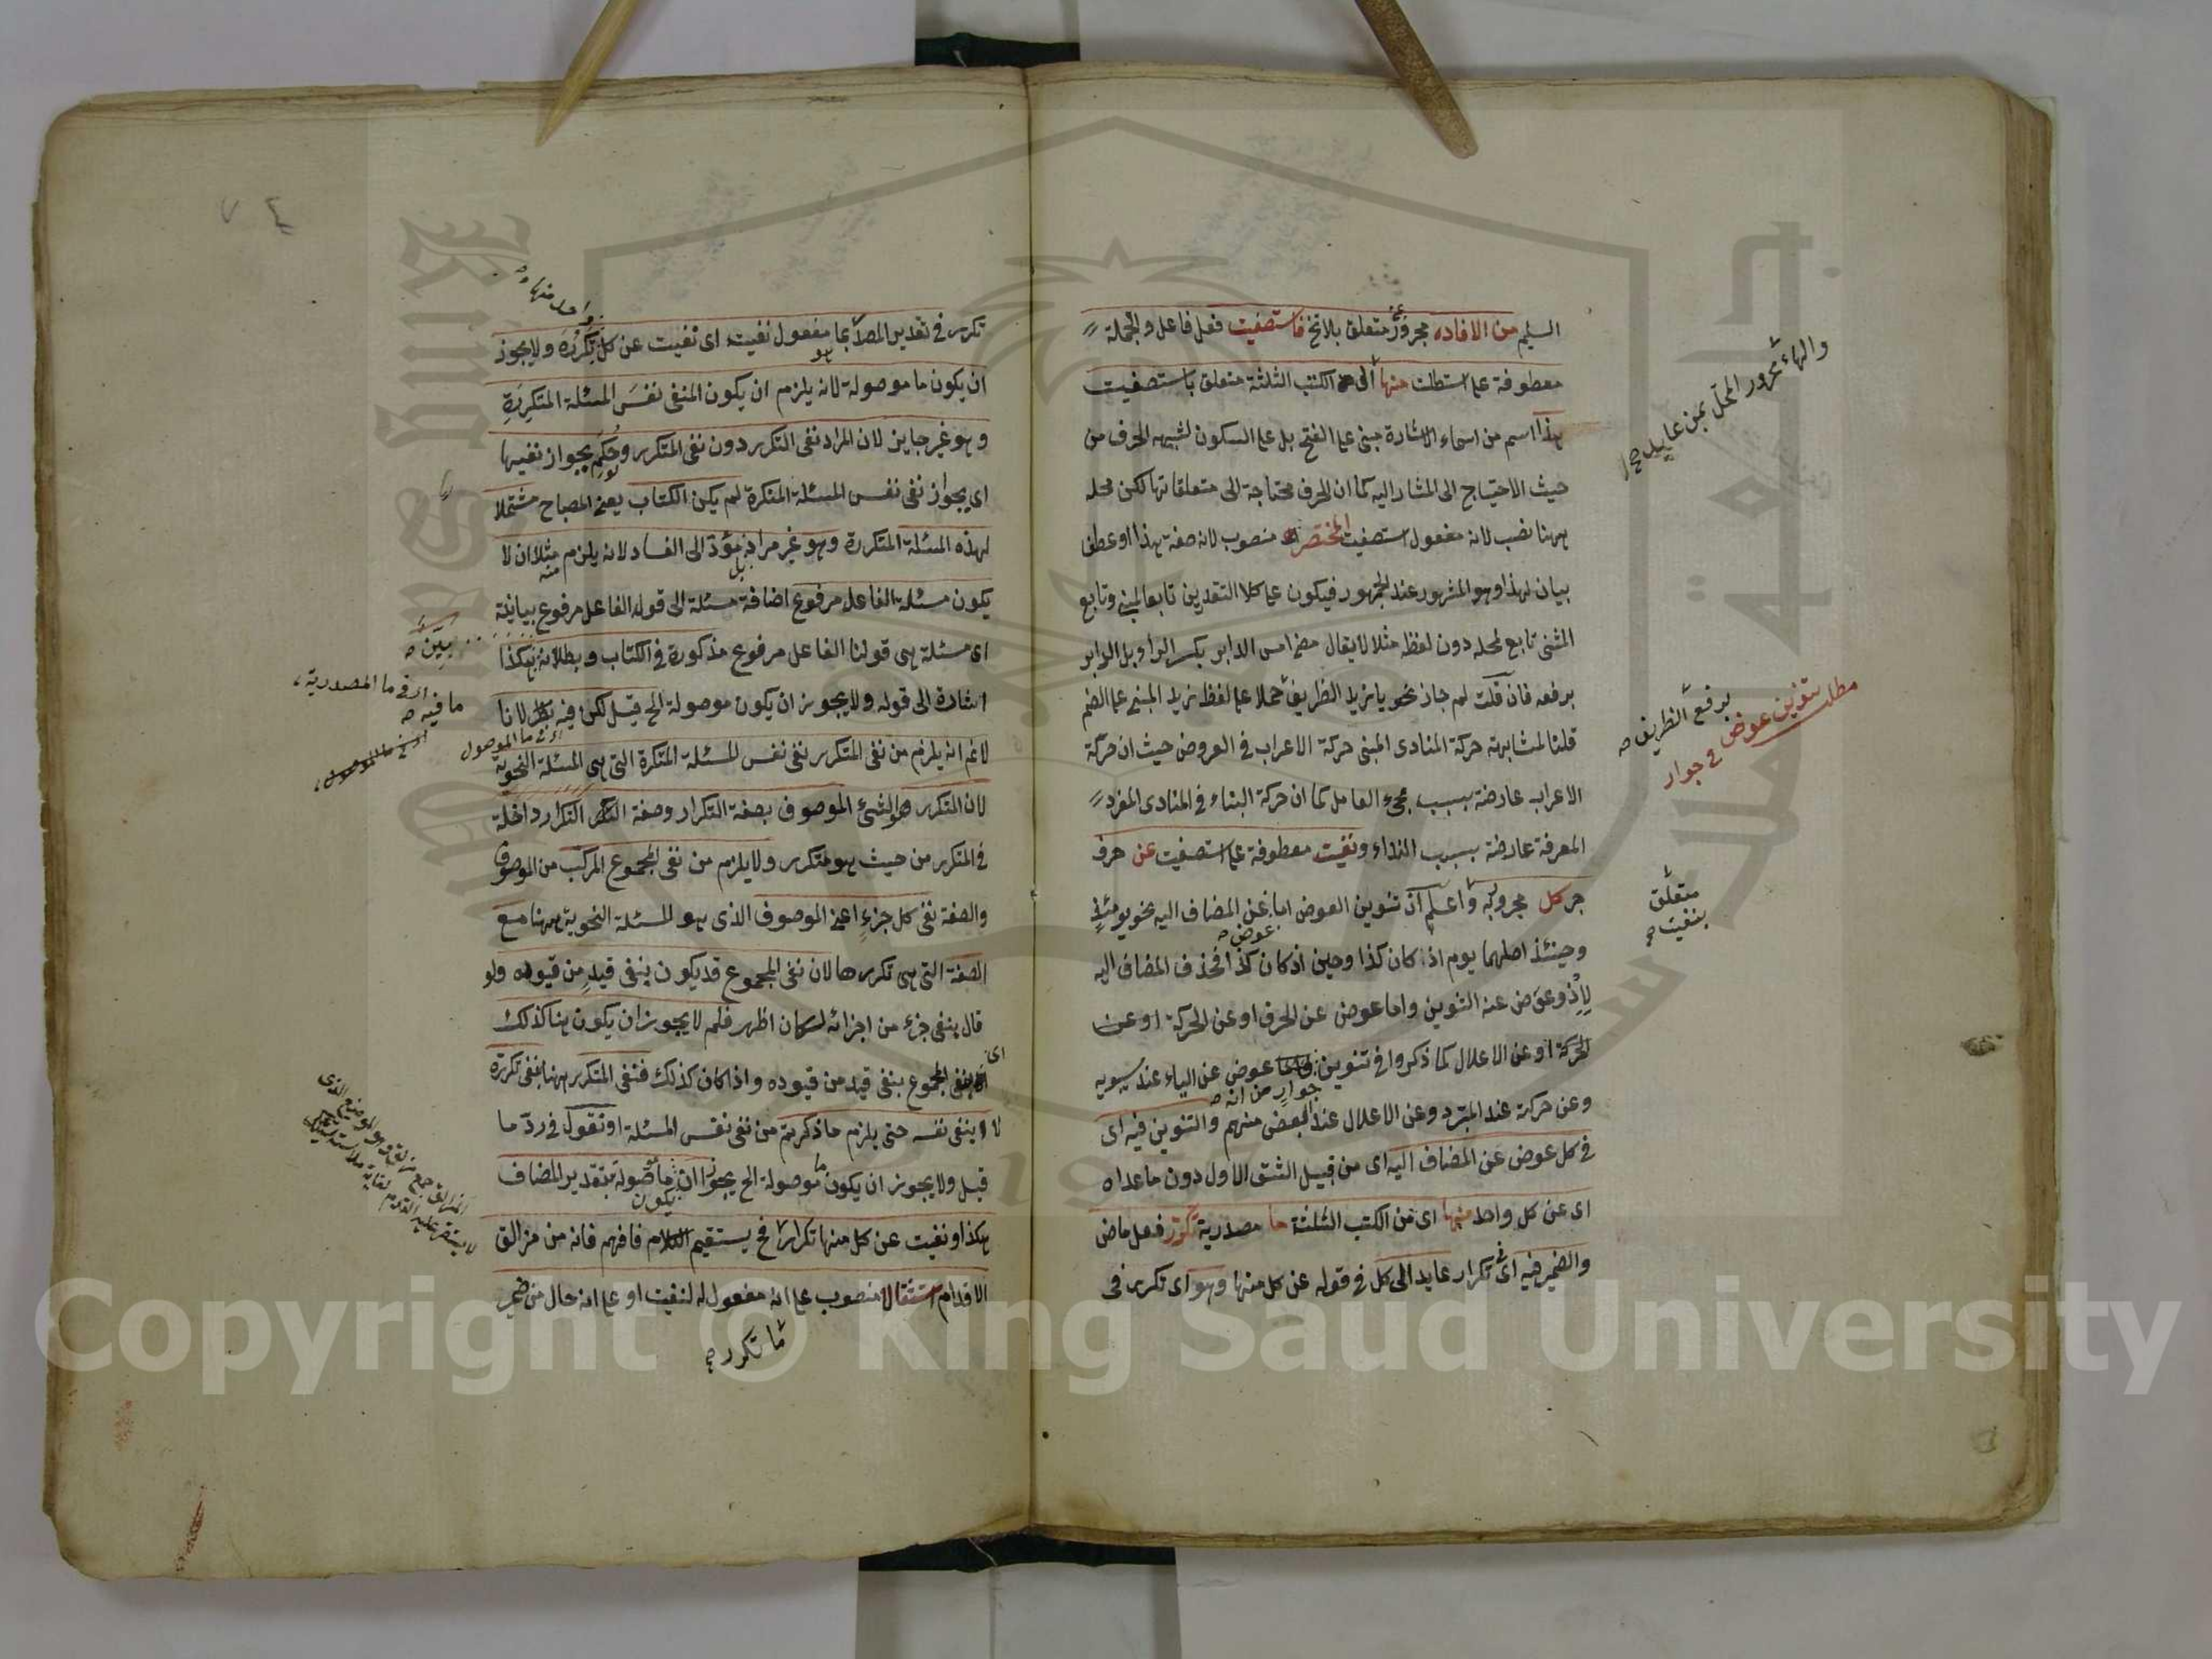 السليم من الافاده مجرور متعلق بلانخ فاستصفيت فعل فاعل والجملة
معطوفة على استطلت منها الى من الكتب الثلثة متعلق باستصفيت
هذا اسم من اسماء الاشارة مبنى على الفتح بل على السكون لشبهه الحرف من
حيث الاحتياج الى المشار اليه كما ان الحرف محتاجة الى متعلقاتها لكن محله
ههنا نصب لانه مفعول استصفيت المختصر منصوب لانه صفة هذا او عطف
بيان لهذا وهو المشهور عند الجمهور فيكون على كلا التقديرين تابعا لمبنى وتابع
المبنى تابع لمحله دون لفظه مثلا لا يقال مضى امس الدابر بكسر الراء بل الدابر
برفعه فان قلت لم جاز نحو يا زيد الظريف حملا على لفظ زيد المبنى على الضم
قلنا لمشابهته حركة المنادى المبنى حركة الاعراب فى العروض حيث ان حركة
الاعراب عارضة بسبب مجىء العامل كما ان حركة البناء فى المنادى المفرد
المعرفة عارضة بسبب النداء ونفيت معطوفة على استصفيت عن حرف
جر كل مجرور به واعلم ان تنوين العوض اما عن المضاف اليه نحو يومئذ
وحينئذ اصلهما يوم اذ كان كذا وحين اذ كان كذا فحذف المضاف اليه
لاذ وعوض عنه التنوين واما عوض عن الحرف او عن الحركة او عن
الحركة او عن الاعلال كما ذكروا فى تنوين جوار من انه عوض عن الياء عند سيبويه
وعن حركته عند المبرد وعن الاعلال عند البعض منهم والتنوين فيه اى
فى كل عوض عن المضاف اليه اى من قبيل الشق الاول دون ما عداه
اى عن كل واحد منها اى من الكتب الثلثة ما مصدرية تكرر فعل ماض
والضمير فيه اى فى تكرار عايد الى كل فى قوله عن كل منها وهو اى تكرر فى
والهاء مجرور المحل بمن عايد
برفع الظريف
مطلب تنوين عوض فى جوار
متعلق
بنفيت
تكرر فى تقدير المصدر بما مفعول نفيت اى نفيت عن كل تكرره ولا يجوز
واحد منها
ان يكون ما موصولة لانه يلزم ان يكون المنفى نفس المسئلة المتكررة
وهو غير جايز لان المراد نفى التكرر دون نفى المتكرر ولو حكم بجواز نفيها
اى يجواز نفى نفس المسئلة المتكررة لم يكن الكتاب يعنى المصباح مشتملا
لهذه المسئلة المتكررة وهو غير مراد بل مؤد الى الفساد لانه يلزم منه مثلا ان لا
يكون مسئلة الفاعل مرفوع اضافة مسئلة الى قوله الفاعل مرفوع بيانية
اى مسئلة هى قولنا الفاعل مرفوع مذكورة فى الكتاب وبطلانه بيّن هكذا
اشارة الى قوله ولا يجوز ان يكون موصولة الخ قيل لكن فيه ما فيه لانا
لا نم انه يلزم من نفى المتكرر نفى نفس المسئلة المتكررة التى هى المسئلة النحوية
لان المتكرر هو الشئ الموصوف بصفة التكرار وصفة التكرار داخلة
فى المتكرر من حيث هو متكرر ولا يلزم من نفى المجموع المركب من الموصوف
والصفة نفى كل جزء اعنى الموصوف الذى هو المسئلة النحوية ههنا مع
الصفة التى هى تكررها لان نفى المجموع قد يكون بنفى قيد من قيوده ولو
قال بنفى جزء من اجزائه لكان اظهر فلم لا يجوز ان يكون هنا كذلك
اى نفى المجموع بنفى قيد من قيوده واذا كان كذلك فنفى المتكرر ههنا بنفى تكرره
لا بنفى نفسه حتى يلزم ما ذكرتم من نفى نفس المسئلة او نقول فى رد ما
قيل ولا يجوز ان يكون ما موصولة الخ يجوز ان يكون ما موصولة بتقدير المضاف
هكذا ونفيت عن كل منها تكرار ما فح يستقيم الكلام فافهم فانه من مزالق
الاقدام استثقالا منصوب على انه مفعول له لنفيت او على انه حال من ضمير
ما تكرر
بيّن
اى فى ما المصدرية
ما فيه
اى فى ما الموصول